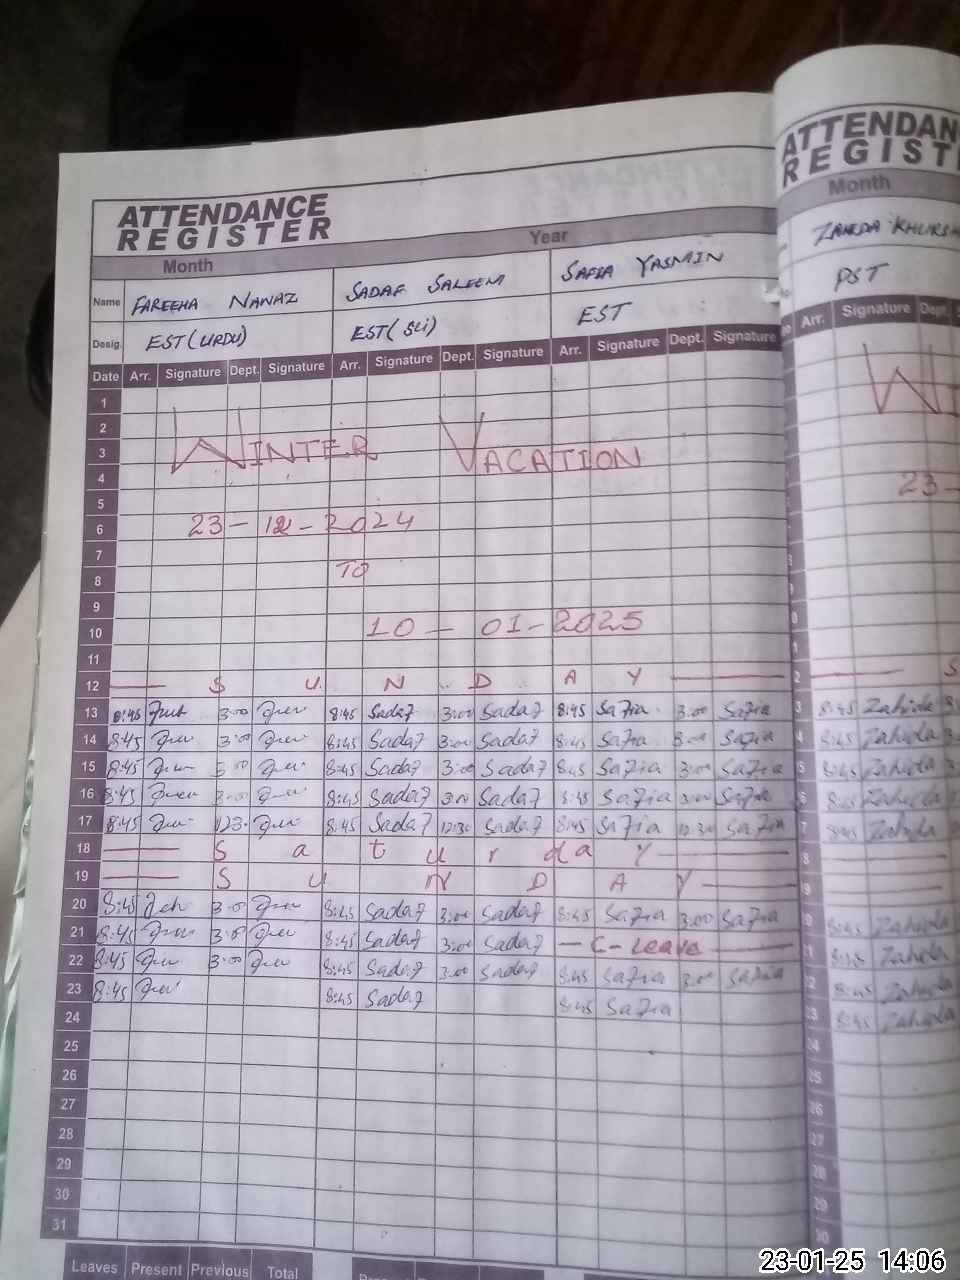 ATTENDANCE
REGISTER
Month Year
Name FAREEHA NAWAZ SADAF SALEEM SAFIA YASMIN
Desig. EST(URDU) EST(SLi) EST
Date Arr. Signature Dept. Signature Arr. Signature Dept. Signature Arr. Signature Dept. Signature
1
2
3 WINTER VACATION
4
5
6 23-12-2024
7
8 TO
9
10 10-01-2025
11
12 SUNDAY
13 8:45 3:00 8:45 Sadaf 3:00 Sadaf 8:45 Safia 3:00 Safia
14 8:45 3:00 8:45 Sadaf 3:00 Sadaf 8:45 Safia 3:00 Safia
15 8:45 3:00 8:45 Sadaf 3:00 Sadaf 8:45 Safia 3:00 Safia
16 8:45 3:00 8:45 Sadaf 3:00 Sadaf 8:45 Safia 3:00 Safia
17 8:45 8:45 Sadaf 12:30 Sadaf 8:45 Safia 12:30 Safia
18 Saturday
19 SUNDAY
20 8:45 3:00 8:45 Sadaf 3:00 Sadaf 8:45 Safia 3:00 Safia
21 8:45 3:00 8:45 Sadaf 3:00 Sadaf - C-Leave
22 8:45 3:00 8:45 Sadaf 3:00 Sadaf 8:45 Safia 3:00 Safia
23 8:45 8:45 Sadaf 8:45 Safia
24
25
26
27
28
29
30
31
Leaves Present Previous Total
ATTENDAN
REGIST
Month
ZAHIDA KHURSH
PST
Arr. Signature Dept.
WI
23-
S
8:45 Zahida
8:45 Zahida
8:45 Zahida
8:45 Zahida
8:45 Zahida
8:45 Zahida
8:45 Zahida
8:45 Zahida
8:45 Zahida
23-01-25 14:06